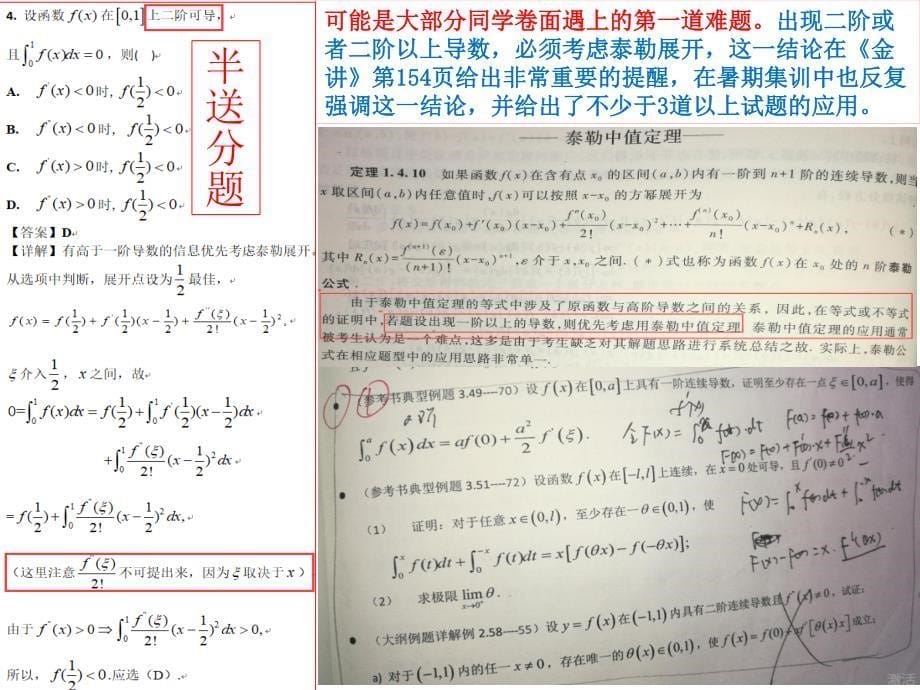 4. 设函数 f(x) 在 [0,1] 上二阶可导,
且 ∫₀¹ f(x)dx = 0, 则( )
A. f'(x) < 0 时, f(1/2) < 0
B. f''(x) < 0 时, f(1/2) < 0
C. f'(x) > 0 时, f(1/2) < 0
D. f''(x) > 0 时, f(1/2) < 0
半送分题
【答案】D
【详解】有高于一阶导数的信息优先考虑泰勒展开。
从选项中判断，展开点设为 1/2 最佳，
f(x) = f(1/2) + f'(1/2)(x − 1/2) + f''(ξ)/2! (x − 1/2)².
ξ介入 1/2，x 之间，故
0=∫₀¹ f(x)dx = f(1/2) + ∫₀¹ f'(1/2)(x − 1/2)dx
+∫₀¹ f''(ξ)/2! (x − 1/2)² dx
= f(1/2) + ∫₀¹ f''(ξ)/2! (x − 1/2)² dx,
（这里注意 f''(ξ)/2! 不可提出来，因为 ξ 取决于 x）
由于 f''(x) > 0 ⇒ ∫₀¹ f''(ξ)/2! (x − 1/2)² dx > 0,
所以, f(1/2) < 0.应选（D）.
可能是大部分同学卷面遇上的第一道难题。出现二阶或
者二阶以上导数，必须考虑泰勒展开，这一结论在《金
讲》第154页给出非常重要的提醒，在暑期集训中也反复
强调这一结论，并给出了不少于3道以上试题的应用。
泰勒中值定理
定理 1.4.10 如果函数 f(x) 在含有点 x₀ 的区间 (a,b) 内有一阶到 n+1 阶的连续导数,则当
x 取区间 (a,b) 内任意值时, f(x) 可以按照 x−x₀ 的方幂展开为
f(x)=f(x₀)+f'(x₀)(x−x₀)+f''(x₀)/2! (x−x₀)²+⋯+f⁽ⁿ⁾(x₀)/n! (x−x₀)ⁿ+Rₙ(x), (*)
其中 Rₙ(x)=f⁽ⁿ⁺¹⁾(ε)/(n+1)! (x−x₀)ⁿ⁺¹, ε 介于 x,x₀ 之间. (*)式也称为函数 f(x) 在 x₀ 处的 n 阶泰勒
公式.
由于泰勒中值定理的等式中涉及了原函数与高阶导数之间的关系，因此，在等式或不等式
的证明中,若题设出现一阶以上的导数,则优先考虑用泰勒中值定理 泰勒中值定理的应用通常
被考生认为是一个难点,这多是由于考生缺乏对其解题思路进行系统总结之故. 实际上,泰勒公
式在相应题型中的应用思路非常单一.
(参考书典型例题 3.49----70) 设 f(x) 在 [0,a] 上具有一阶连续导数，证明至少存在一点 ξ∈[0,a]，使得
二阶
∫₀ᵃ f(x)dx = af(0) + a²/2 f'(ξ).
(参考书典型例题 3.51----72) 设函数 f(x) 在 [−l,l] 上连续，在 x=0 处可导，且 f'(0)≠0
(1) 证明：对于任意 x∈(0,l)，至少存在一 θ∈(0,1)，使
∫₀ˣ f(t)dt + ∫₀⁻ˣ f(t)dt = x[f(θx) − f(−θx)];
(2) 求极限 lim x→0⁺ θ.
(大纲例题详解例 2.58----55) 设 y=f(x) 在 (−1,1) 内具有二阶连续导数且 f''(x)≠0，试证：
a) 对于 (−1,1) 内的任一 x≠0，存在唯一的 θ(x)∈(0,1)，使 f(x)=f(0)+xf'[θ(x)x] 成立；
激活